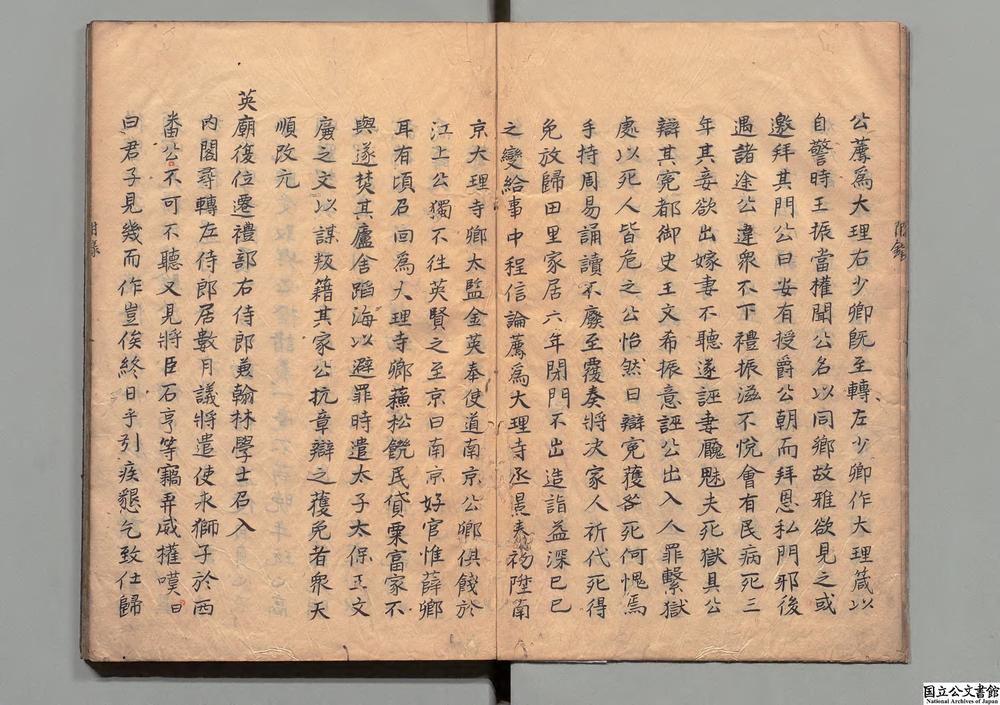 公薦爲大理右少卿旣至轉左少卿作大理箴以
自警時王振當權聞公名以同鄉故雅欲見之或
邀拜其門公曰安有授爵公朝而拜恩私門邪後
遇諸途公違衆不下禮振滋不悅會有民病死三
年其妾欲出嫁妻不聽遂誣妻魘魅夫死獄具公
辯其寃都御史王文希振意誣公出入人罪繫獄
處以死人皆危之公怡然曰辯寃獲咎死何愧焉
手持周易誦讀不廢至覆奏將决家人祈代死得
免放歸田里家居六年閉門不出造詣益深己巳
之變給事中程信論薦爲大理寺丞景泰初陞南
京大理寺卿太監金英奉使道南京公卿俱餞於
江上公獨不徃英賢之至京曰南京好官惟薛卿
耳有頃召回爲大理寺卿蘓松饑民貸粟富家不
與遂焚其廬舍蹈海以避罪時遣太子太保王文
廣之文以謀叛籍其家公抗章辯之獲免者衆天
順改元
英廟復位遷禮部右侍郎兼翰林學士召入
内閣尋轉左侍郎居數月議將遣使求獅子於西
番公不可不聽又見將臣石亨等竊弄威權嘆曰
曰君子見幾而作豈俟終日乎引疾懇乞致仕歸
附錄
附錄
国立公文書館
National Archives of Japan